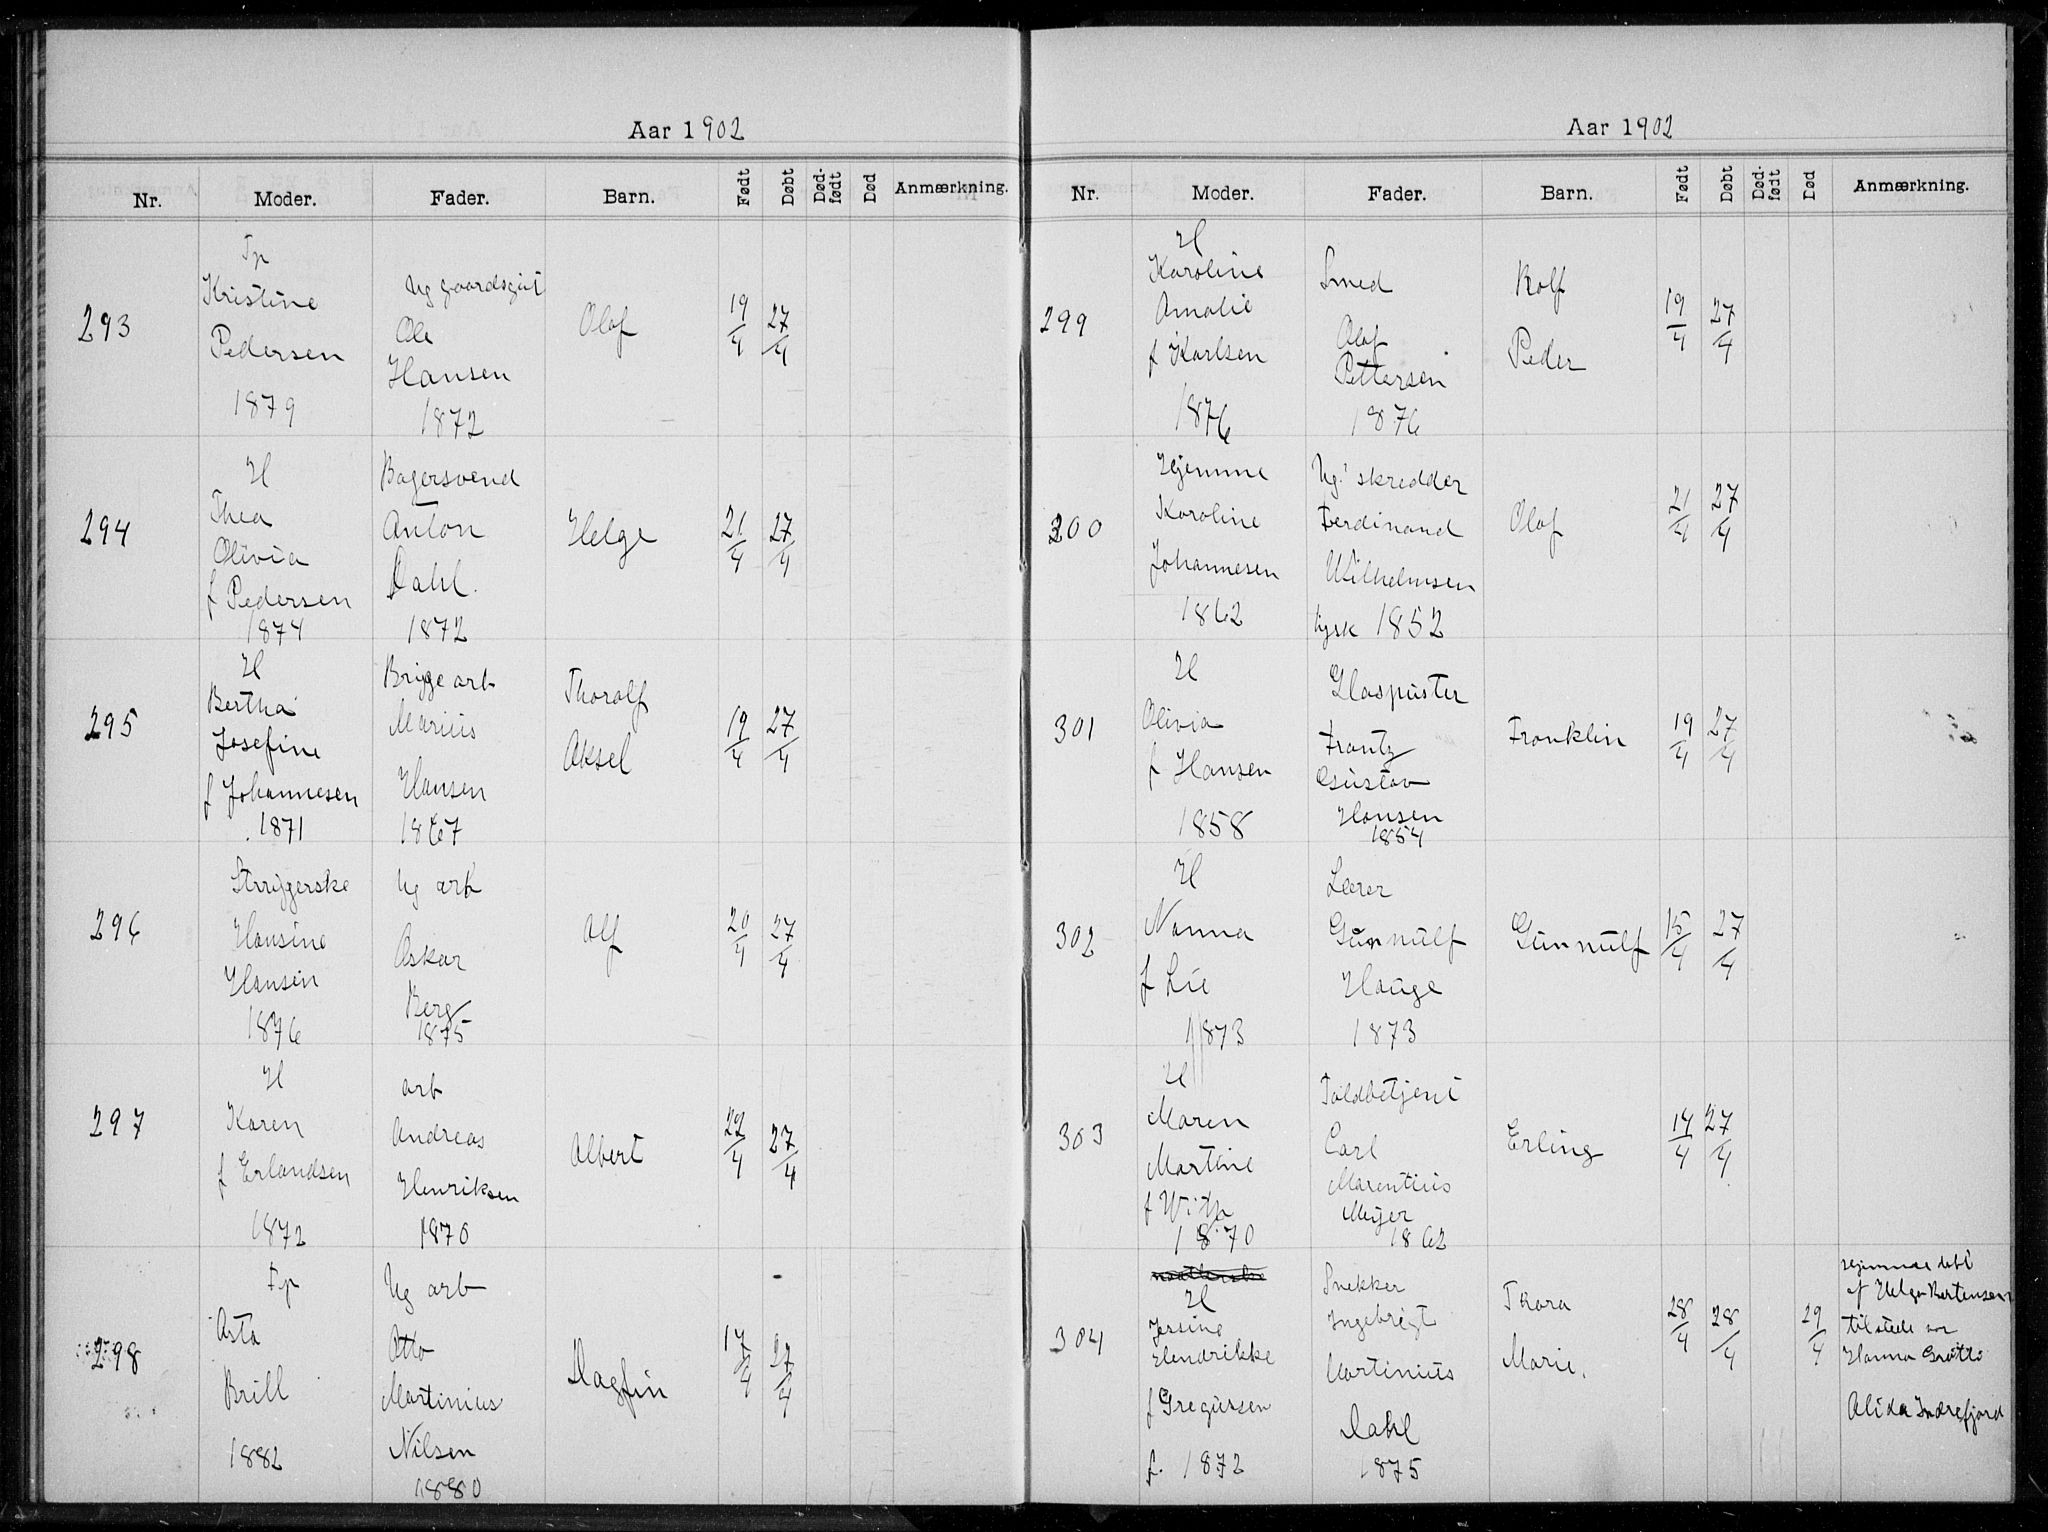 Aar 1902
Nr. Moder. Fader. Barn. Født Døbt Død-født Død Anmærkning.
293
Tp
Kristine
Pedersen
1879
Ug gaardsgut
Ole
Hansen
1872
Olaf
19/4 27/4
294
H
Thea
Olivia
f Pedersen
1874
Bagersvend
Anton
Dahl.
1872
Helge
21/4 27/4
295
H
Bertha
Josefine
f Johannesen
1871
Brygge arb
Marius
Hansen
1867
Thoralf
Aksel
19/4 27/4
296
Strygerske
Hansine
Hansen
1876
Ug arb
Oskar
Berg
1875
Alf
20/4 27/4
297
H
Karen
f Erlandsen
1872
arb
Andreas
Henriksen
1870
Albert
22/4 27/4
298
Tp
Asta
Brill
1882
Ug arb
Otto
Martinius
Nilsen
1880
Dagfin
17/4 27/4
Aar 1902
Nr. Moder. Fader. Barn. Født Døbt Død-født Død Anmærkning.
299
H
Karoline
Amalie
f Karlsen
1876
Smed
Olaf
Pettersen
1876
Rolf
Peder
19/4 27/4
300
Hjemme
Karoline
Johannesen
1862
Ug. skredder
Ferdinand
Wilhelmsen
tysk 1852
Olaf
21/4 27/4
301
H
Olivia
f Hansen
1858
Glaspuster
Frantz
Gustav
Hansen
1854
Franklin
19/4 27/4
302
H
Nanna
f Lie
1873
Lærer
Gunnulf
Hauge
1873
Gunnulf
15/4 27/4
303
H
Maren
Martine
f With
1870
Toldbetjent
Carl
Marentius
Meyer
1862
Erling
14/4 27/4
304
H
Jensine
Hendrikke
f Gregersen
f. 1872
Snekker
Ingebrigt
Martinius
Dahl
1875
Thora
Marie.
28/4 28/4 29/4
Hjemme døbt
af Helga Bertensen
tilstede var
Hanna
Alida Indrefjord